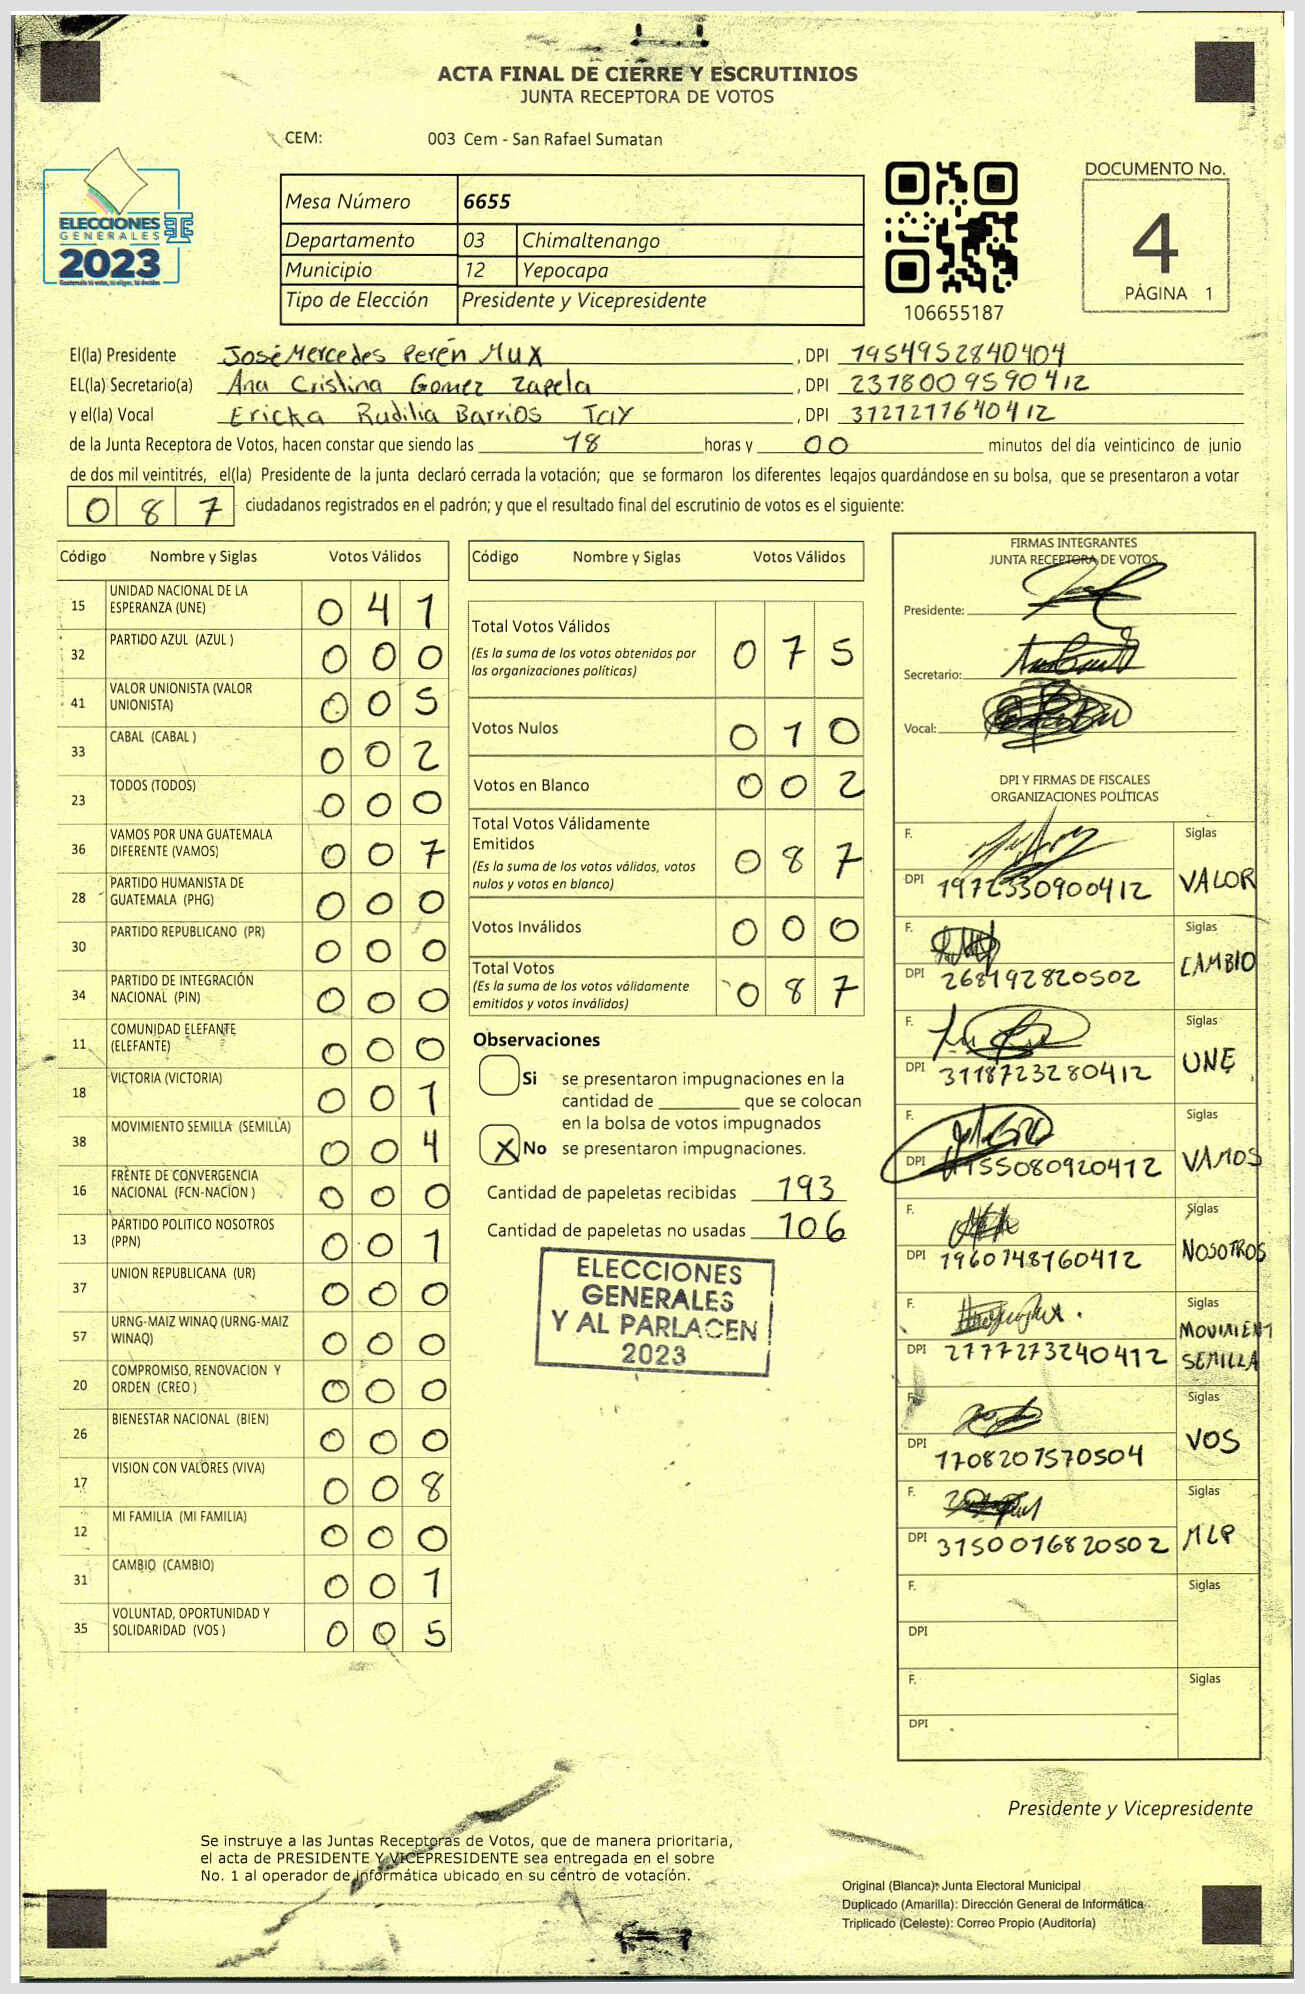 ACTA FINAL DE CIERRE Y ESCRUTINIOS
JUNTA RECEPTORA DE VOTOS
CEM: 003 Cem - San Rafael Sumatan
ELECCIONES
GENERALES
2023
Mesa Número 6655
Departamento 03 Chimaltenango
Municipio 12 Yepocapa
Tipo de Elección Presidente y Vicepresidente
106655187
DOCUMENTO No.
4
PÁGINA 1
El(la) Presidente José Mercedes Perén Mux, DPI 1954952840404
EL(la) Secretario(a) Ana Cristina Gomez Zapela, DPI 2378009590412
y el(la) Vocal Ericka Rudilia Barrios Tay, DPI 3121211640412
de la Junta Receptora de Votos, hacen constar que siendo las 18 horas y 00 minutos del día veinticinco de junio
de dos mil veintitrés, el(la) Presidente de la junta declaró cerrada la votación; que se formaron los diferentes legajos guardándose en su bolsa, que se presentaron a votar
087 ciudadanos registrados en el padrón; y que el resultado final del escrutinio de votos es el siguiente:
Código Nombre y Siglas Votos Válidos
15 UNIDAD NACIONAL DE LA ESPERANZA (UNE) 041
32 PARTIDO AZUL (AZUL ) 000
41 VALOR UNIONISTA (VALOR UNIONISTA) 005
33 CABAL (CABAL ) 002
23 TODOS (TODOS) 000
36 VAMOS POR UNA GUATEMALA DIFERENTE (VAMOS) 007
28 PARTIDO HUMANISTA DE GUATEMALA (PHG) 000
30 PARTIDO REPUBLICANO (PR) 000
34 PARTIDO DE INTEGRACIÓN NACIONAL (PIN) 000
11 COMUNIDAD ELEFANTE (ELEFANTE) 000
18 VICTORIA (VICTORIA) 001
38 MOVIMIENTO SEMILLA (SEMILLA) 004
16 FRENTE DE CONVERGENCIA NACIONAL (FCN-NACION ) 000
13 PARTIDO POLITICO NOSOTROS (PPN) 001
37 UNION REPUBLICANA (UR) 000
57 URNG-MAIZ WINAQ (URNG-MAIZ WINAQ) 000
20 COMPROMISO, RENOVACION Y ORDEN (CREO ) 000
26 BIENESTAR NACIONAL (BIEN) 000
17 VISION CON VALORES (VIVA) 008
12 MI FAMILIA (MI FAMILIA) 000
31 CAMBIO (CAMBIO) 001
35 VOLUNTAD, OPORTUNIDAD Y SOLIDARIDAD (VOS ) 005
Código Nombre y Siglas Votos Válidos
Total Votos Válidos 075
(Es la suma de los votos obtenidos por
las organizaciones políticas)
Votos Nulos 010
Votos en Blanco 002
Total Votos Válidamente
Emitidos 087
(Es la suma de los votos válidos, votos
nulos y votos en blanco)
Votos Inválidos 000
Total Votos 087
(Es la suma de los votos válidamente
emitidos y votos inválidos)
Observaciones
Si se presentaron impugnaciones en la
cantidad de ________ que se colocan
en la bolsa de votos impugnados
X No se presentaron impugnaciones.
Cantidad de papeletas recibidas 193
Cantidad de papeletas no usadas 106
ELECCIONES
GENERALES
Y AL PARLACEN
2023
FIRMAS INTEGRANTES
JUNTA RECEPTORA DE VOTOS
Presidente:
Secretario:
Vocal:
DPI Y FIRMAS DE FISCALES
ORGANIZACIONES POLÍTICAS
F. Siglas
DPI 1972330900412 VALOR
F. Siglas
DPI 268192820502 CAMBIO
F. Siglas
DPI 3118723280412 UNE
F. Siglas
DPI VAMOS
F. Siglas
DPI 1960748160412 NOSOTROS
F. Siglas
MOVIMIENT
DPI 2777273240412 SEMILLA
F. Siglas
DPI 1708207570504 VOS
F. Siglas
DPI 3150016820502 MLP
F. Siglas
DPI
F. Siglas
DPI
Presidente y Vicepresidente
Se instruye a las Juntas Receptoras de Votos, que de manera prioritaria,
el acta de PRESIDENTE Y VICEPRESIDENTE sea entregada en el sobre
No. 1 al operador de informática ubicado en su centro de votación.
Original (Blanca): Junta Electoral Municipal
Duplicado (Amarilla): Dirección General de Informática
Triplicado (Celeste): Correo Propio (Auditoría)